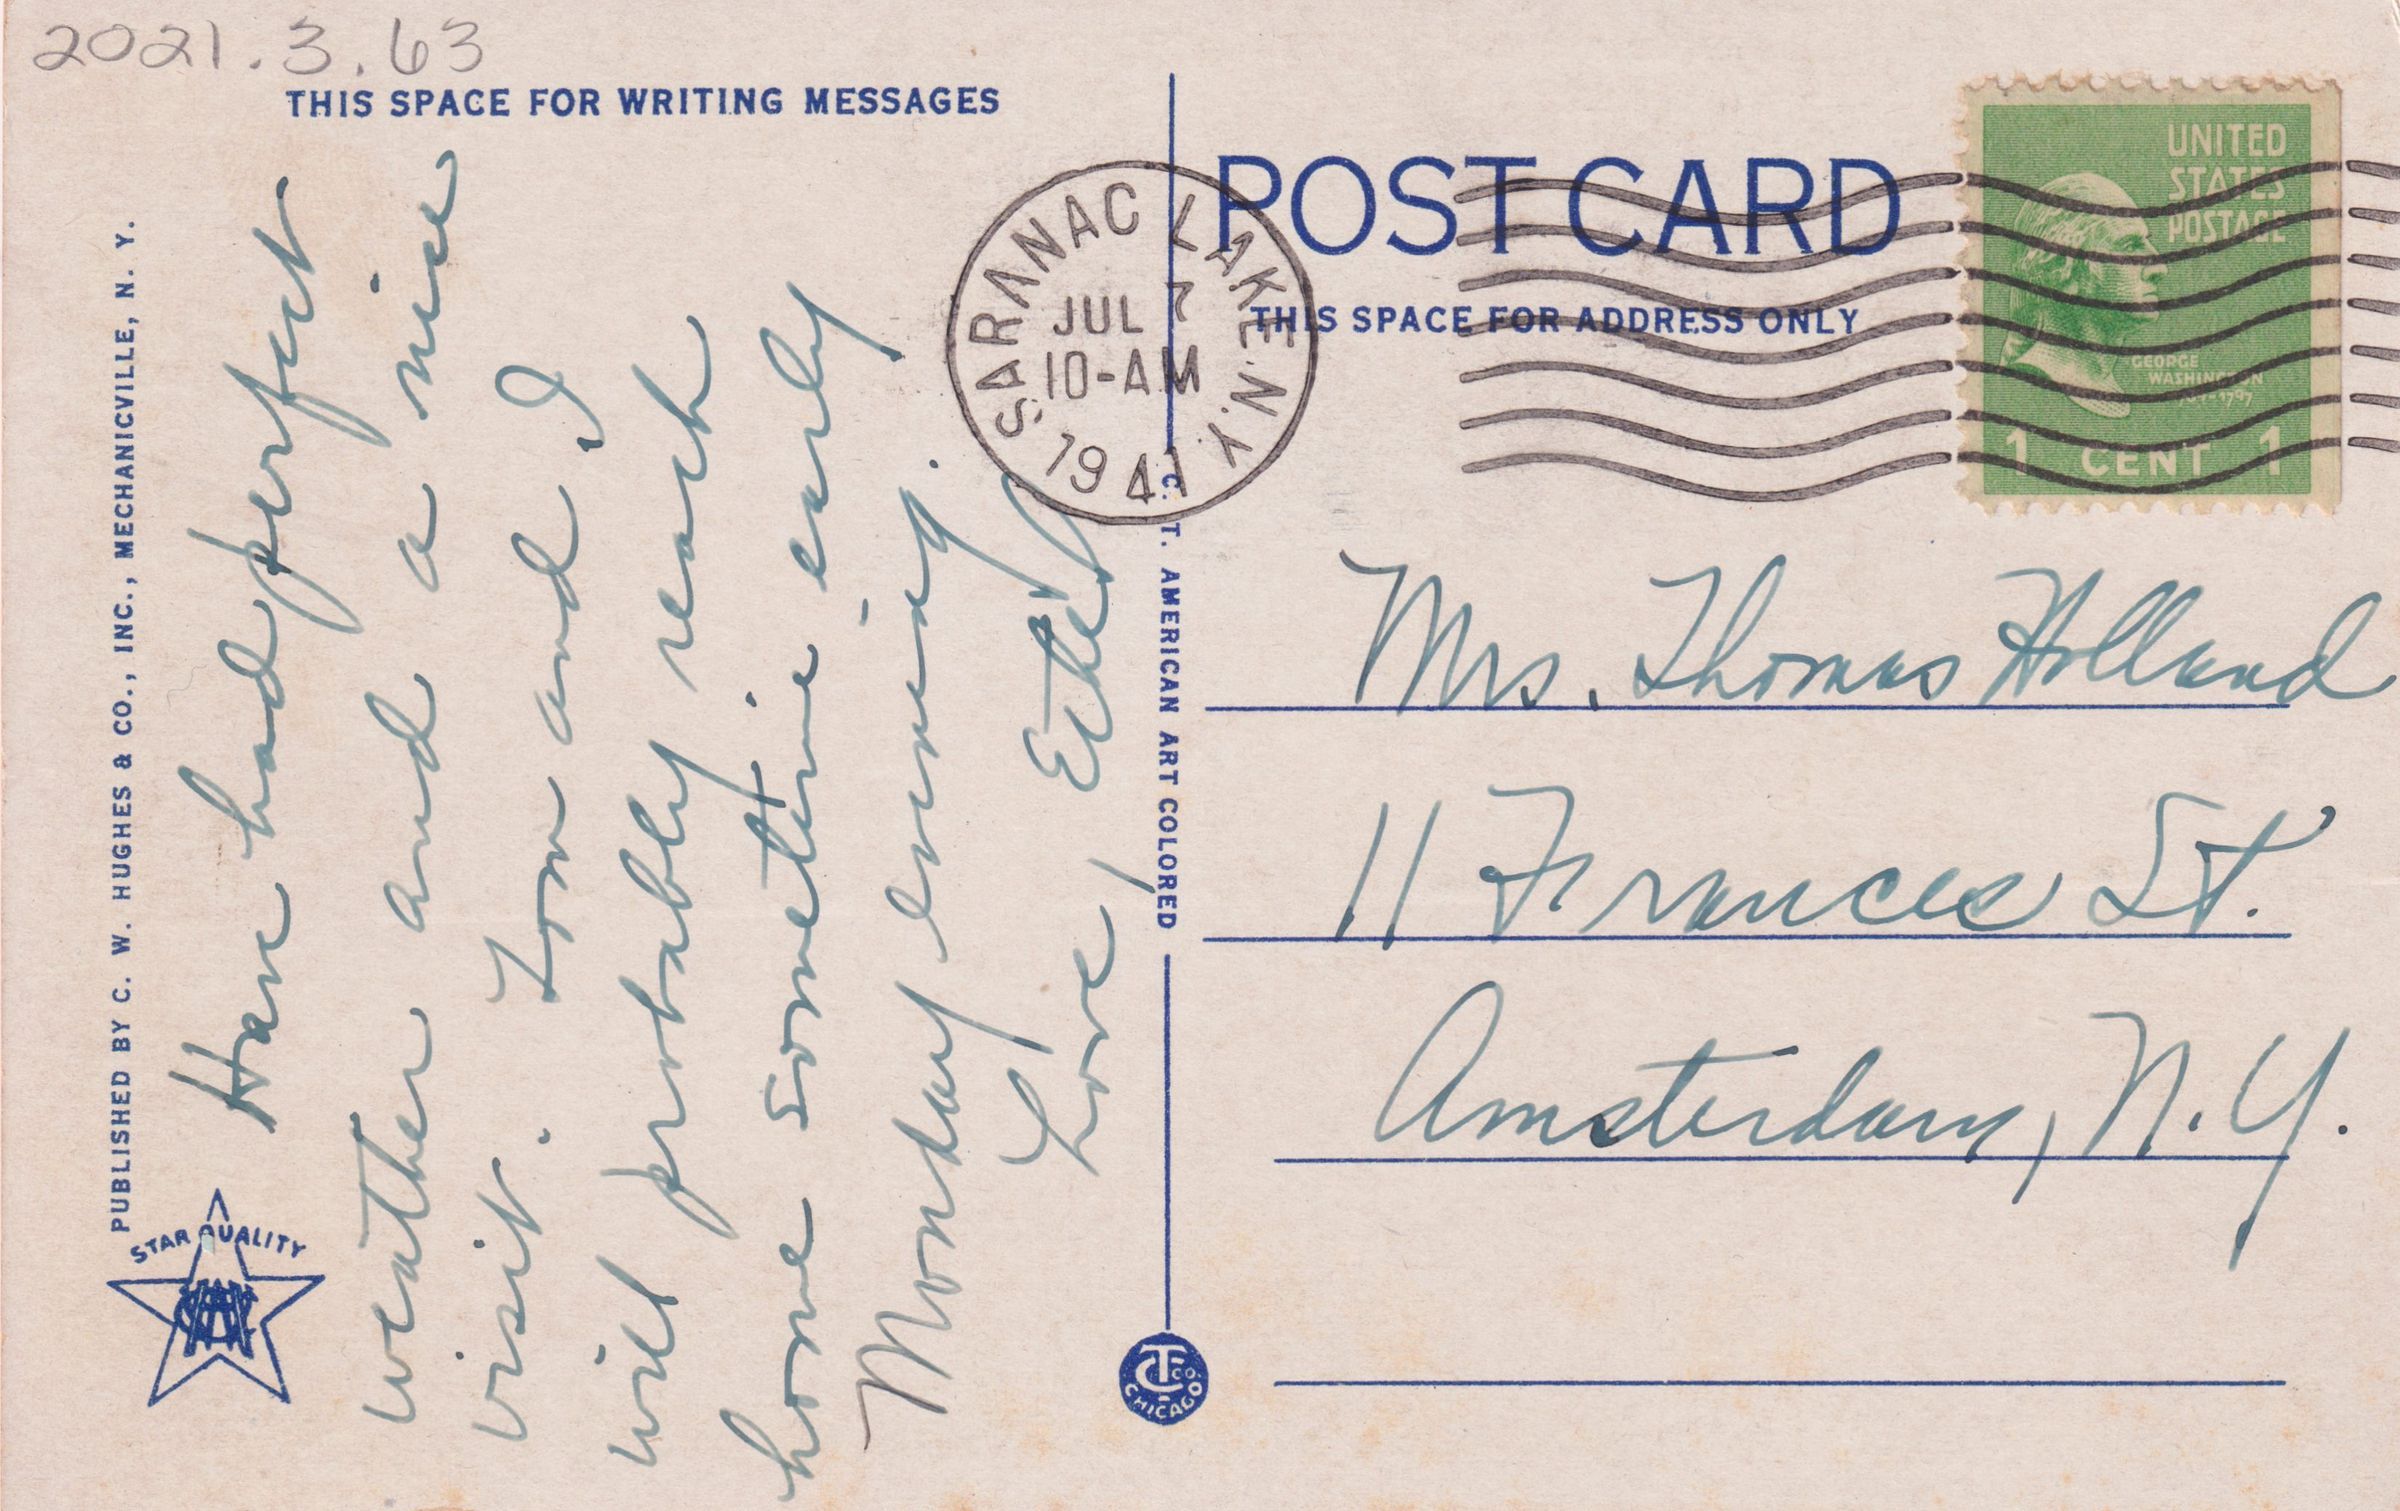 2021.3.63
THIS SPACE FOR WRITING MESSAGES
Have had perfect
weather and a nice
visit. Tom and I
will probably reach
home sometime early
Monday evening.
Love, Ethel
PUBLISHED BY C. W. HUGHES & CO., INC., MECHANICVILLE, N. Y.
STAR QUALITY
C. T. AMERICAN ART COLORED
CHICAGO
POST CARD
THIS SPACE FOR ADDRESS ONLY
SARANAC LAKE, N.Y.
JUL 7
10-AM
1941
UNITED
STATES
POSTAGE
GEORGE
WASHINGTON
1 CENT 1
Mrs. Thomas Holland
11 Frances St.
Amsterdam, N.Y.